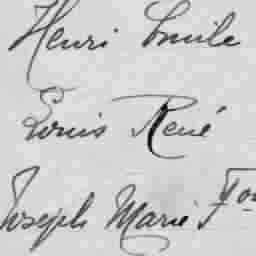 Henri Emile
Louis René
Joseph Marie